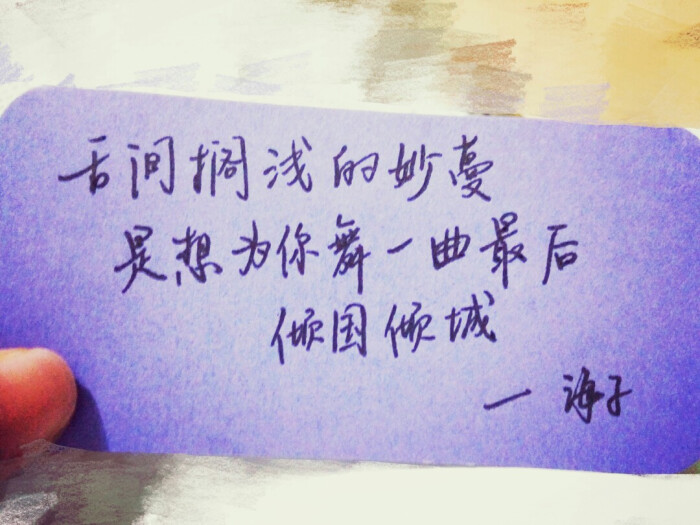 舌间搁浅的妙蔓
是想为你舞一曲最后
倾国倾城
一海子